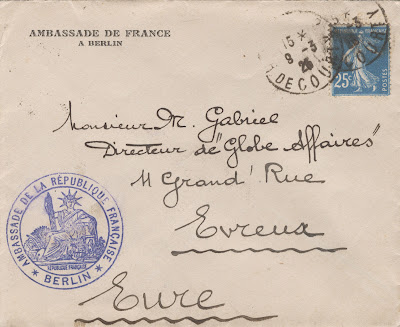 AMBASSADE DE FRANCE
A BERLIN
15 * 3
9 - 3
26
DE COURCELLES
25c
POSTES
Monsieur M. Gabriel
Directeur de "Globe Affaires"
11 Grand' Rue
Evreux
Eure
AMBASSADE DE LA RÉPUBLIQUE FRANÇAISE
RÉPUBLIQUE FRANÇAISE
* BERLIN *